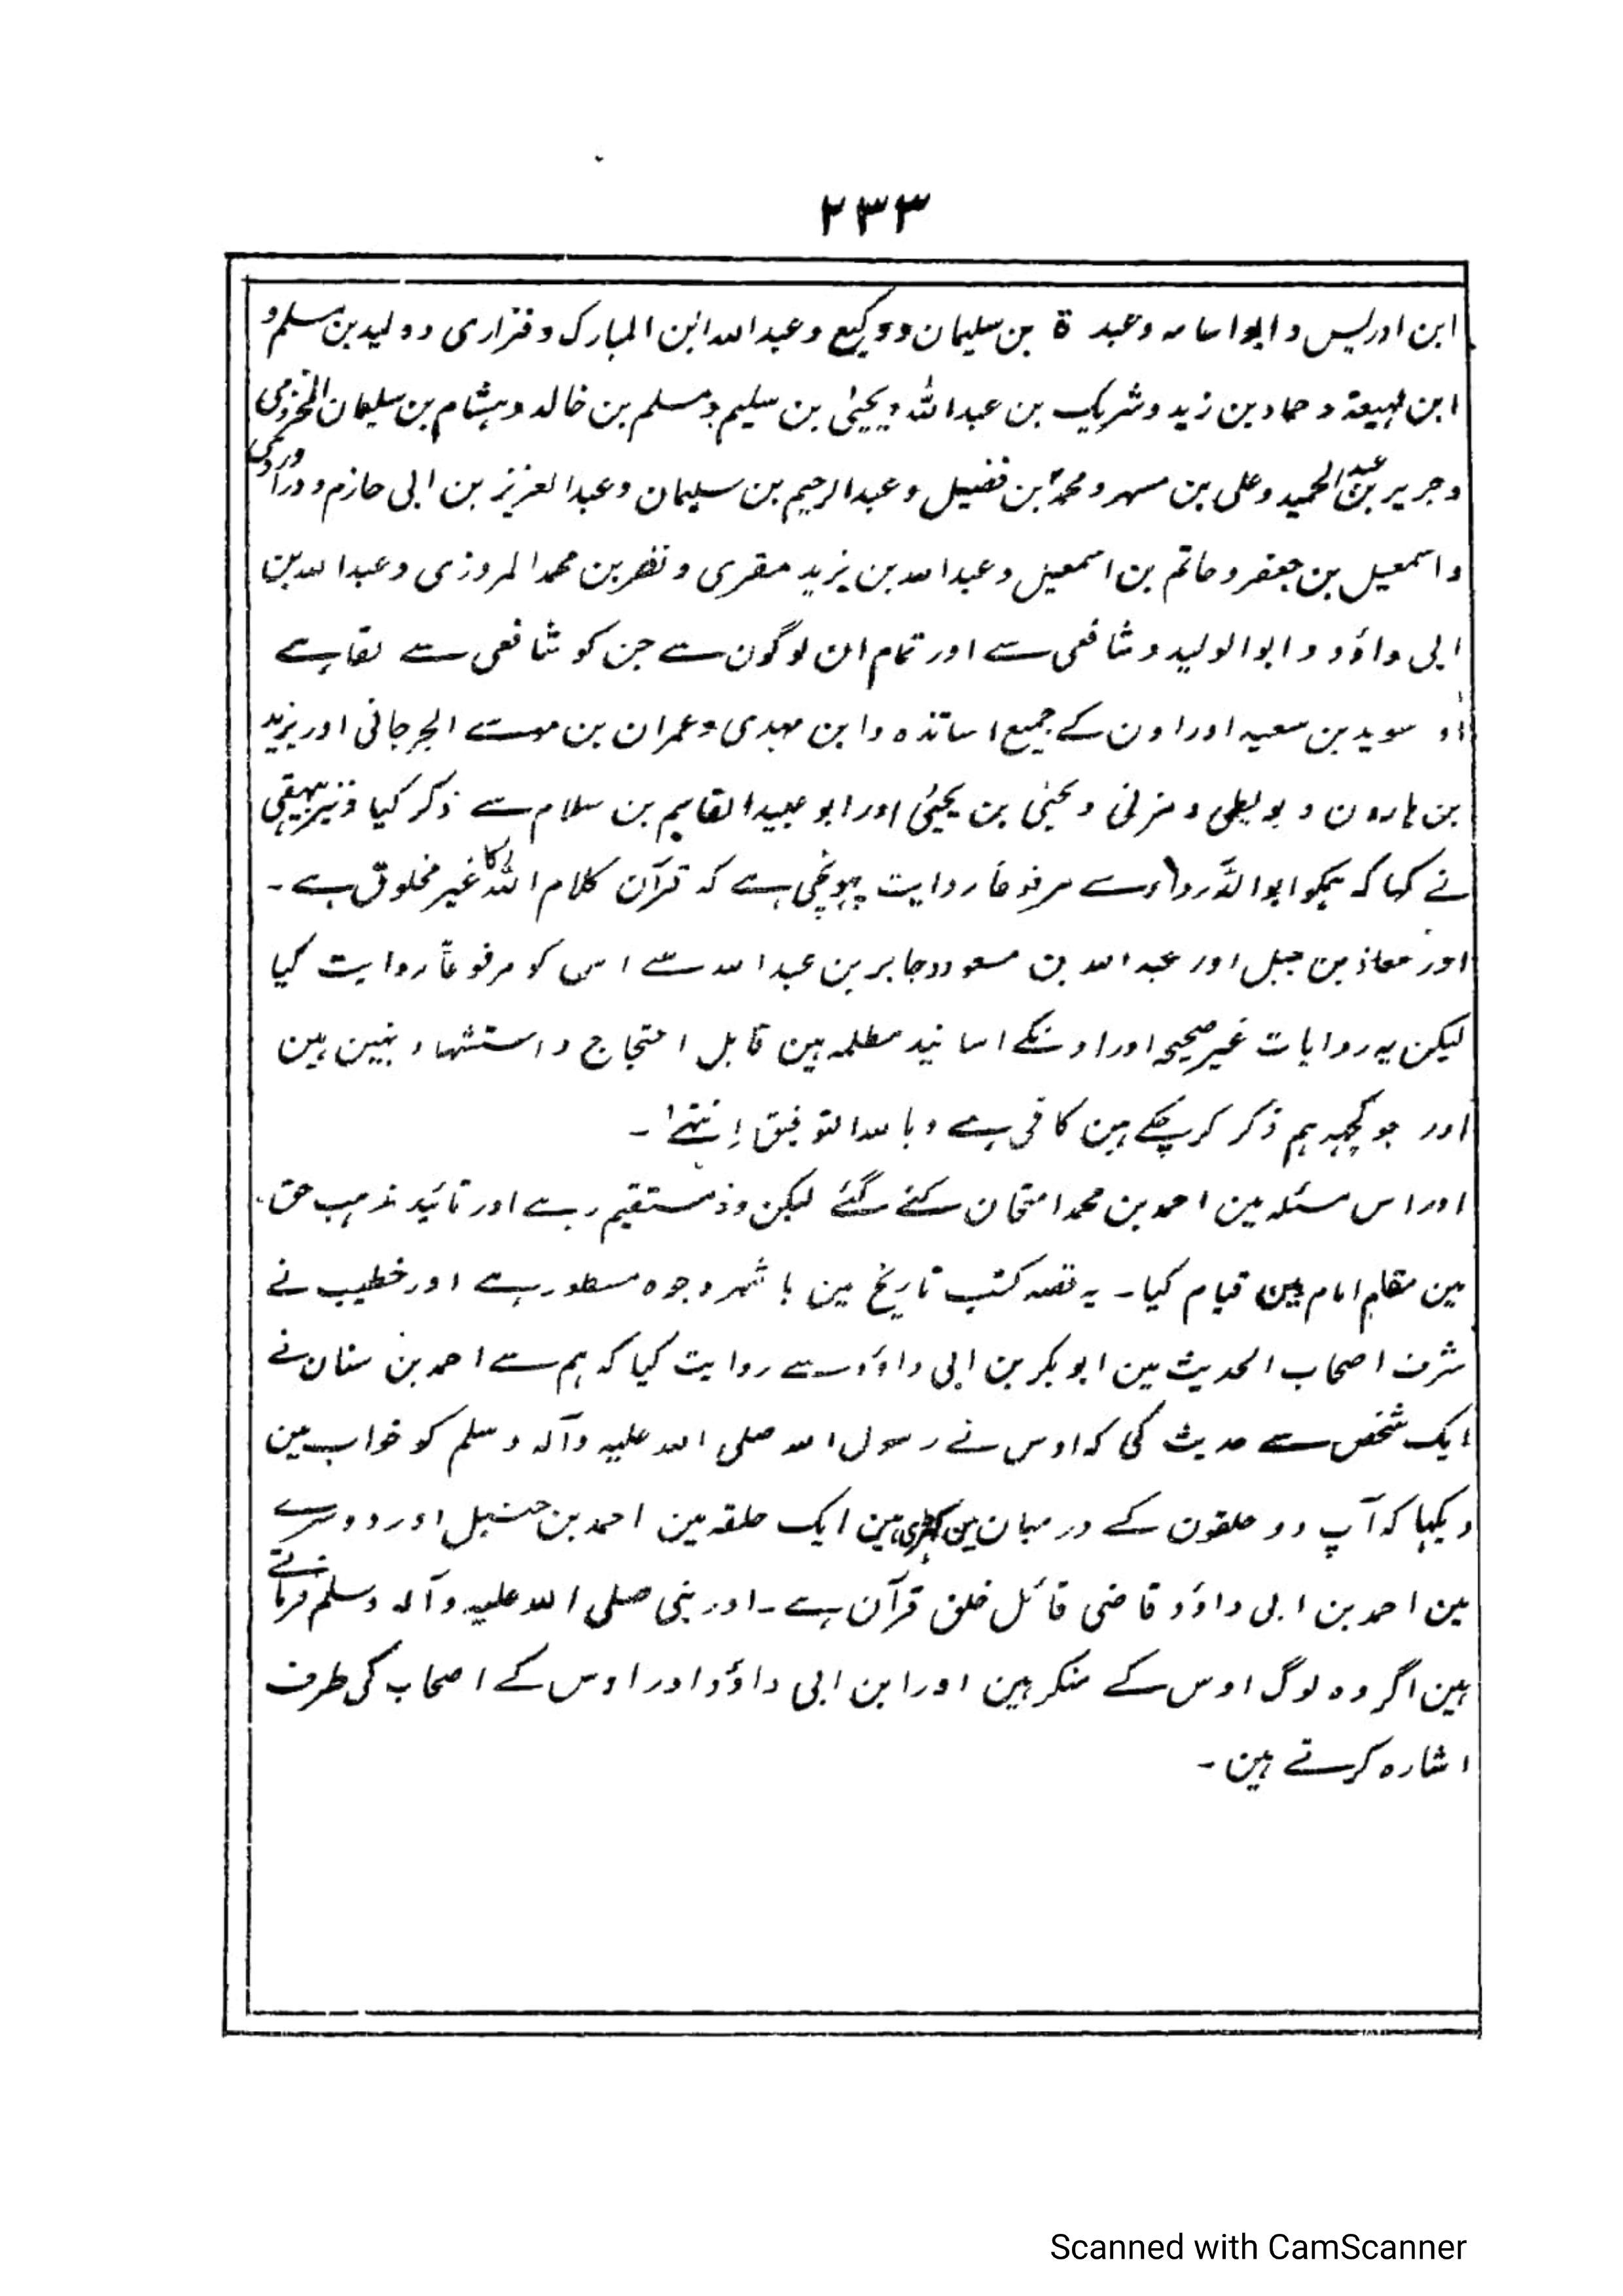 ۲۳۳
ابن ادریس و ابو اسامہ و عبدۃ بن سلیمان و وکیع و عبد اللہ ابن المبارک و فزاری و ولید بن مسلم و
ابن لہیعۃ و حماد بن زید و شریک بن عبد اللہ و یحییٰ بن سلیم و مسلم بن خالد و ہشام بن سلیمان المخزومی
و جریر بن عبد الحمید و علی بن مسہر و محمد بن فضیل و عبد الرحیم بن سلیمان و عبد العزیز بن ابی حازم و دراوردی
و اسمعیل بن جعفر و حاتم بن اسمعیل و عبد اللہ بن یزید مقری و نضر بن محمد المروزی و عبد اللہ بن
ابی داؤد و ابو الولید و شافعی سے اور تمام ان لوگون سے جن کو شافعی سے لقا ہے
سوید بن سعید اور اون کے جمیع اساتذہ و ابن مہدی و عمران بن موسے الجرجانی اور یزید
بن ہارون و بویطی و مزنی و یحییٰ بن یحییٰ اور ابو عبید القاسم بن سلام سے ذکر کیا و نیز بیہقی
نے کہا کہ ہمکو ابو الدرداء سے مرفوعاً روایت پہونچی ہے کہ قرآن کلام اللہ کا غیر مخلوق ہے ۔
اور معاذ بن جبل اور عبد اللہ بن مسعود و جابر بن عبد اللہ سے اس کو مرفوعاً روایت کیا
لیکن یہ روایات غیر صحیح اور اونکے اسانید مظلمہ ہین قابل احتجاج و استشہاد نہین ہین
اور جو کچھہ ہم ذکر کر چکے ہین کافی ہے و باللہ التوفیق اِنتہٰے ۔
اور اس مسئلہ مین احمد بن محمد امتحان کئے گئے لیکن وہ مستقیم رہے اور تائید مذہب حق
مین مقام امام مین قیام کیا ۔ یہ قصہ کتب تاریخ مین باشہر وجوہ مسطور ہے اور خطیب نے
شرف اصحاب الحدیث مین ابو بکر بن ابی داؤد سے روایت کیا کہ ہم سے احمد بن سنان نے
ایک شخص سے حدیث کی کہ اوس نے رسول اللہ صلی اللہ علیہ وآلہ وسلم کو خواب مین
دیکہا کہ آپ دو حلقون کے درمیان مین کھڑے ہین ایک حلقہ مین احمد بن حنبل اور دوسرے
مین احمد بن ابی داؤد قاضی قائل خلق قرآن ہے ۔ اور نبی صلی اللہ علیہ وآلہ وسلم فرماتے
ہین اگر وہ لوگ اوس کے منکر ہین اور ابن ابی داؤد اور اوس کے اصحاب کی طرف
اشارہ کرتے ہین ۔
Scanned with CamScanner